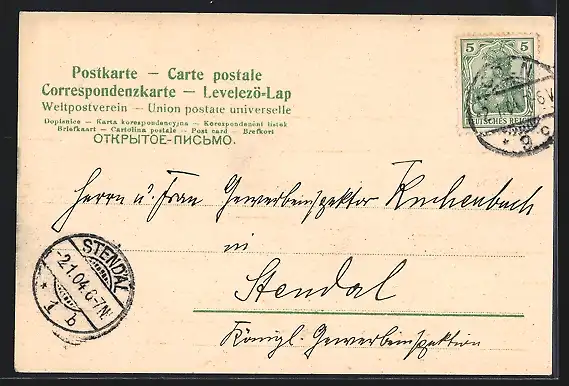 Postkarte – Carte postale
Correspondenzkarte – Levelezö-Lap
Weltpostverein – Union postale universelle
Dopisnice – Karta korespondencyjna – Korespondenční listek
Briefkaart – Cartolina postale – Post card – Brefkort
ОТКРЫТОЕ-ПИСЬМО.
5 5
DEUTSCHES REICH
Herrn u. Frau Gewerbeinspektor Kuchenbuch
in
Stendal
Königl. Gewerbeinspektion
STENDAL
-2.1.04.6-7N.
* 1 b